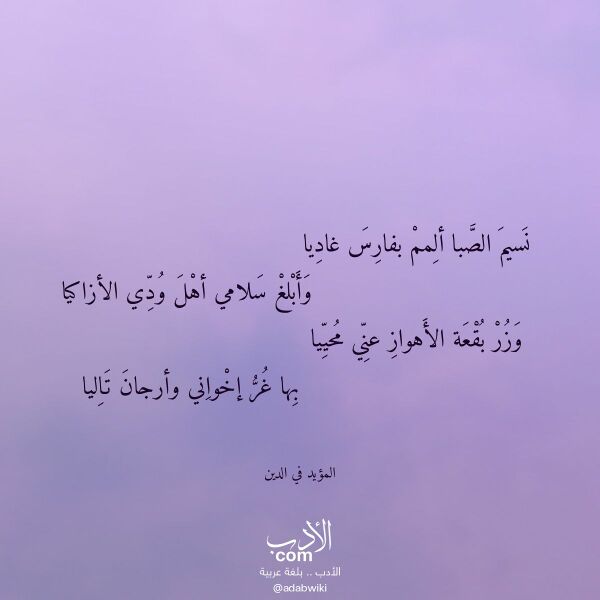 نَسيمَ الصَّبا ألِممْ بفارِسَ غادِيا
وَأَبْلغْ سَلامي أهْلَ وُدِّي الأزاكيا
وَزُرْ بُقْعَة الأَهوازِ عنِّي مُحيِّيا
بِها غُرُّ إخْواِني وأرجانَ تَاِليا
المؤيد في الدين
الأدب
.com
الأدب .. بلغة عربية
@adabwiki